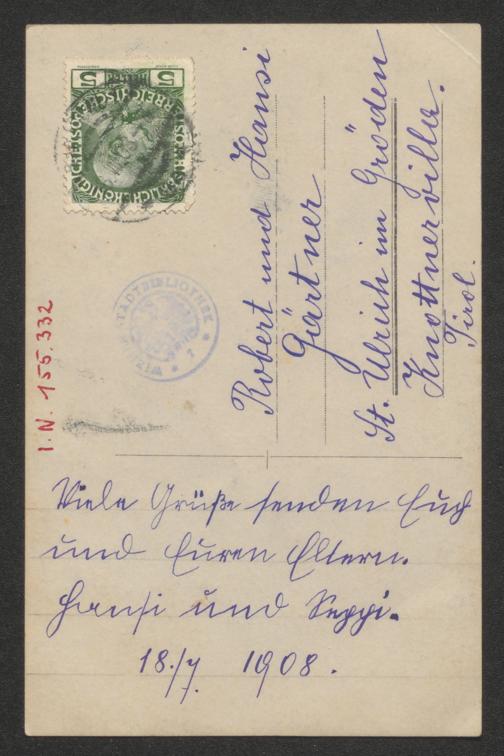 Robert und Hansi
Gärtner
St. Ulrich im Gröden
Knottnervilla.
Tirol.
Viele Grüße senden Euch
und Euren Eltern.
Hansi und Seppi.
18./7 1908.
I.N. 155.332
STADTBIBLIOTHEK
WIEN
5 HELLER 5